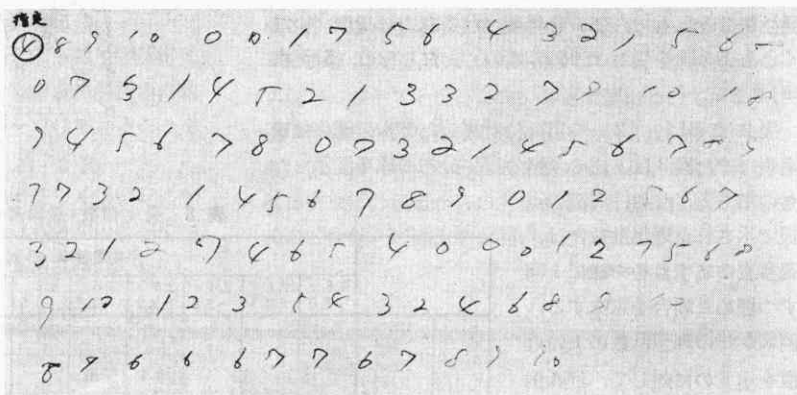 指定
④ 8 9 10 0 0 1 7 5 6 4 3 2 1 5 6 5
0 7 5 1 4 5 2 1 3 3 2 7 8 10 10
9 4 5 6 7 8 0 7 3 2 1 4 5 6 7 5 3
7 7 3 2 1 4 5 6 7 8 9 0 1 2 5 6 7
3 2 1 2 7 4 6 5 4 0 0 0 1 2 7 5 6 8
9 12 1 2 3 5 4 3 2 4 6 8 5
8 7 6 6 6 7 7 6 7 8 9 10